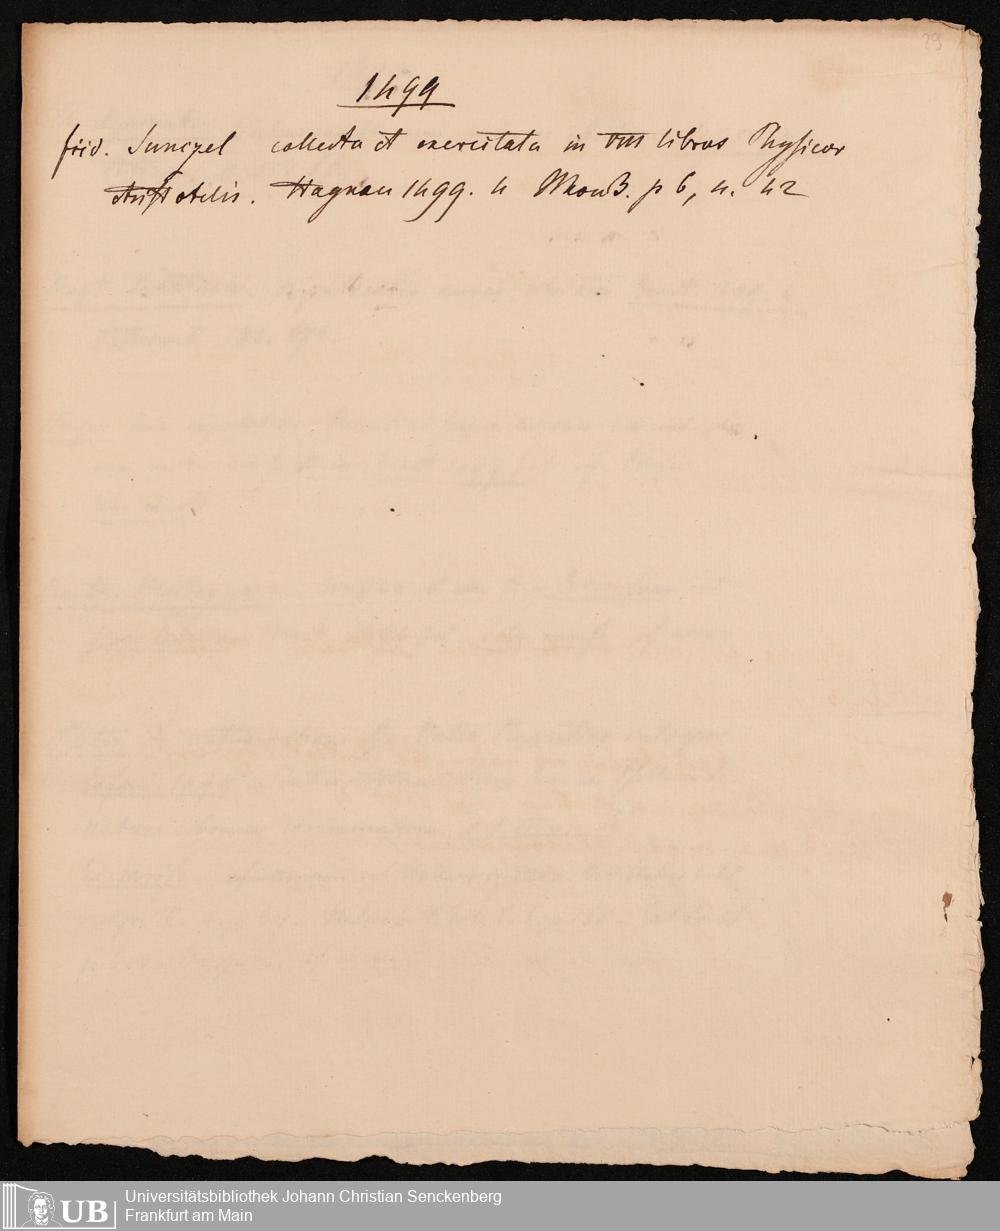 29
1499
frid. Sunczel collecta et exercitata in VIII libros Physicor
Aristotelis. Hagnau 1499. 4 p 6, n. 42
Universitätsbibliothek Johann Christian Senckenberg
Frankfurt am Main
UB